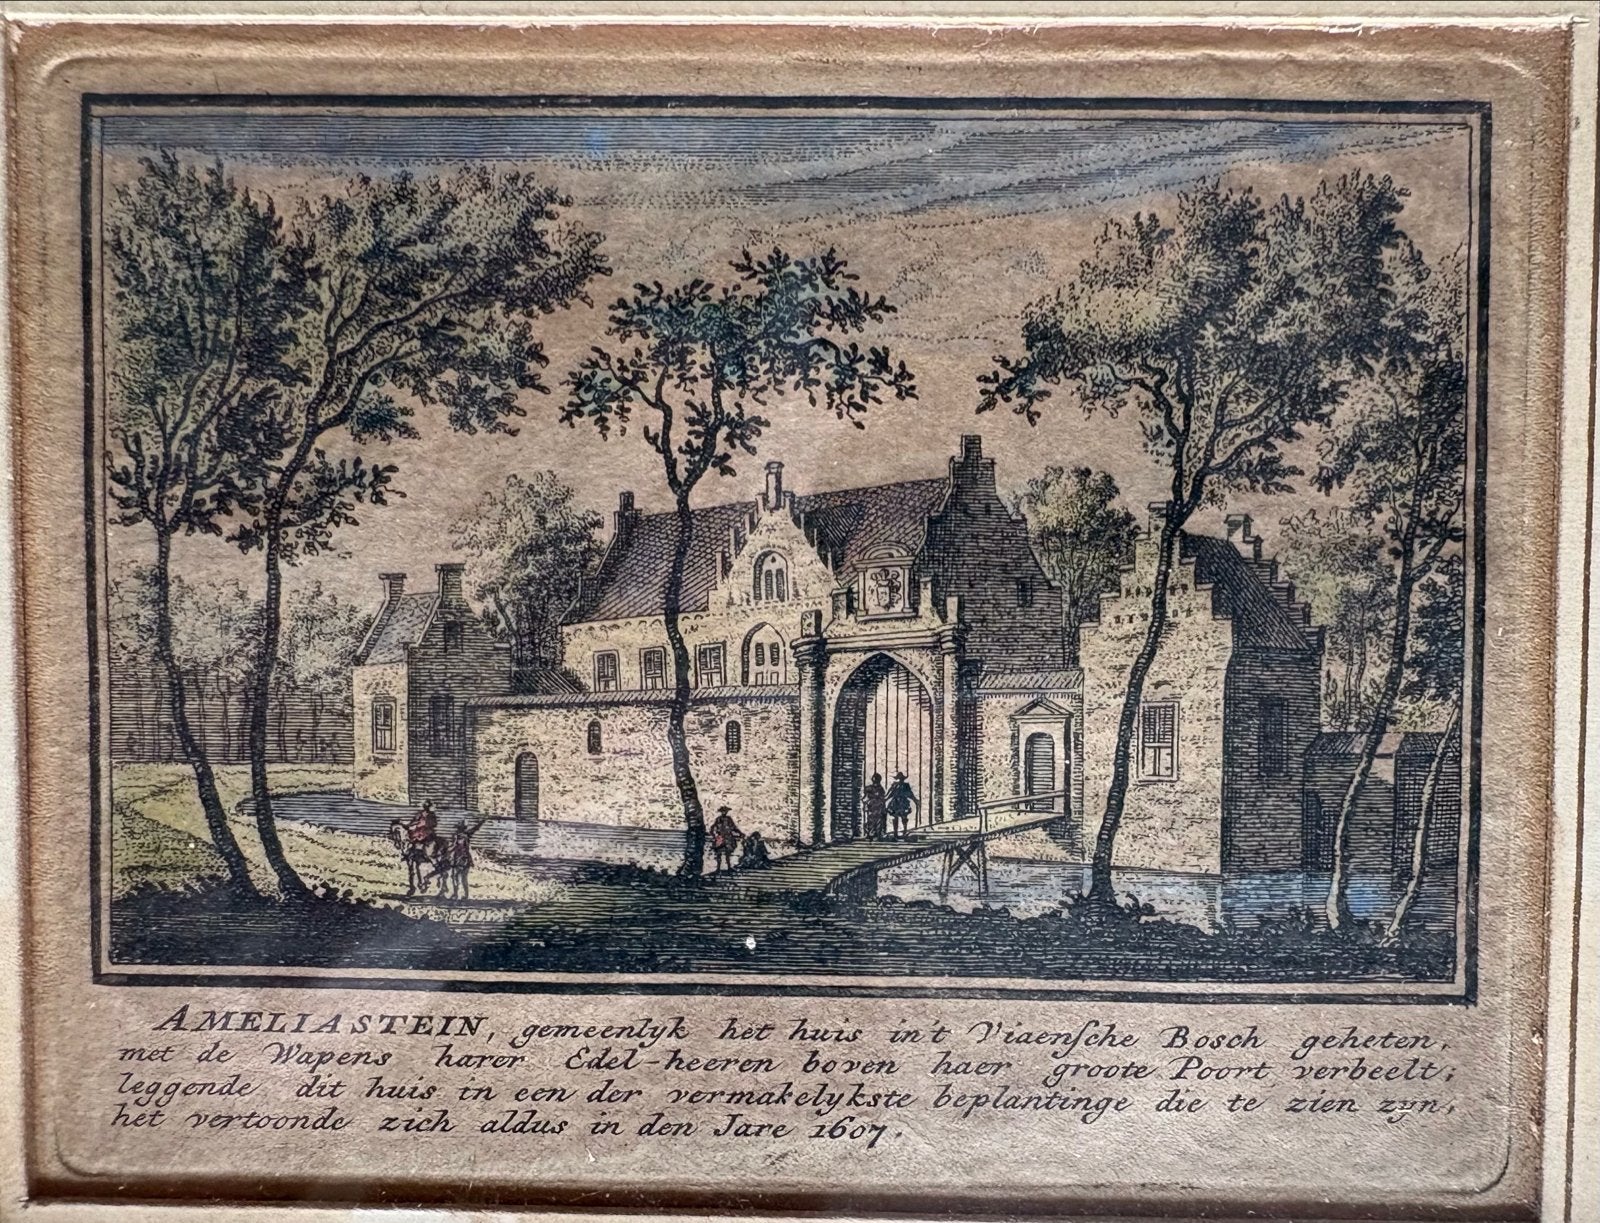 AMELIASTEIN, gemeenlyk het huis in't Viaenſche Bosch geheten,
met de Wapens harer Edel-heeren boven haer groote Poort verbeelt;
leggende dit huis in een der vermakelykste beplantinge die te zien zyn,
het vertoonde zich aldus in den Jare 1607.